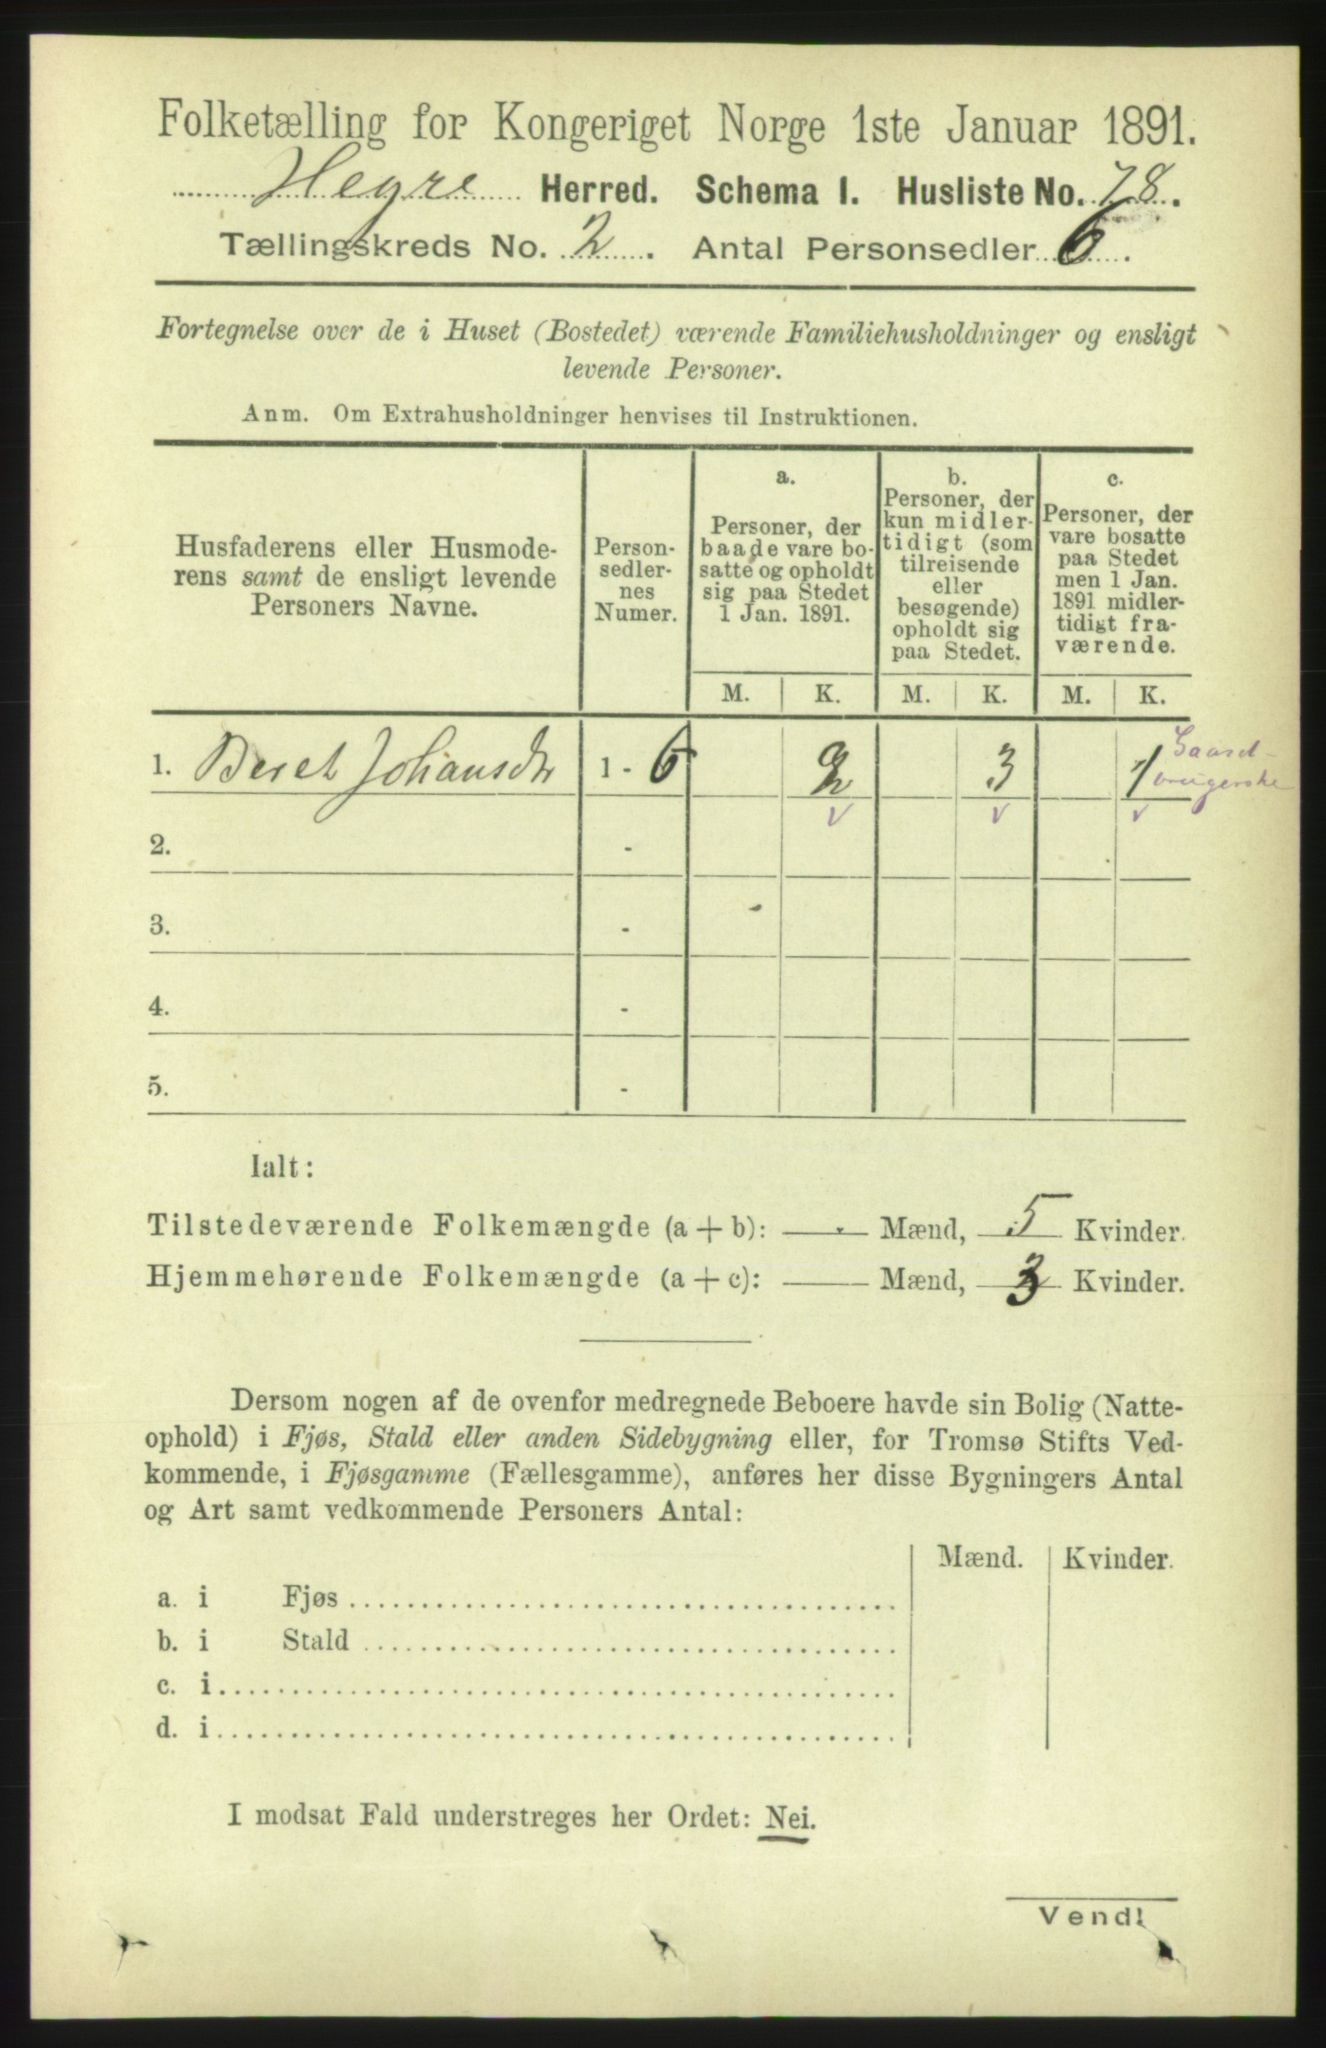 Folketælling for Kongeriget Norge 1ste Januar 1891.
Hegre Herred. Schema I. Husliste No. 78.
Tællingskreds No. 2. Antal Personsedler 6.
Fortegnelse over de i Huset (Bostedet) værende Familiehusholdninger og ensligt
levende Personer.
Anm. Om Extrahusholdninger henvises til Instruktionen.
Husfaderens eller Husmode-
rens samt de ensligt levende
Personers Navne.
Person-
sedler-
nes
Numer.
a.
Personer, der
baade vare bo-
satte og opholdt
sig paa Stedet
1 Jan. 1891.
b.
Personer, der
kun midler-
tidigt (som
tilreisende
eller
besøgende)
opholdt sig
paa Stedet.
c.
Personer, der
vare bosatte
paa Stedet
men 1 Jan.
1891 midler-
tidigt fra-
værende.
M. K. M. K. M. K.
1. Beret Johansdtr 1 - 6 2 3 1 Gaard-
brugerske
2. -
3. -
4. -
5. -
Ialt:
Tilstedeværende Folkemængde (a + b): — Mænd, 5 Kvinder.
Hjemmehørende Folkemængde (a + c): — Mænd, 3 Kvinder.
Dersom nogen af de ovenfor medregnede Beboere havde sin Bolig (Natte-
ophold) i Fjøs, Stald eller anden Sidebygning eller, for Tromsø Stifts Ved-
kommende, i Fjøsgamme (Fællesgamme), anføres her disse Bygningers Antal
og Art samt vedkommende Personers Antal:
Mænd. Kvinder.
a. i Fjøs
b. i Stald
c. i
d. i
I modsat Fald understreges her Ordet: Nei.
Vend!